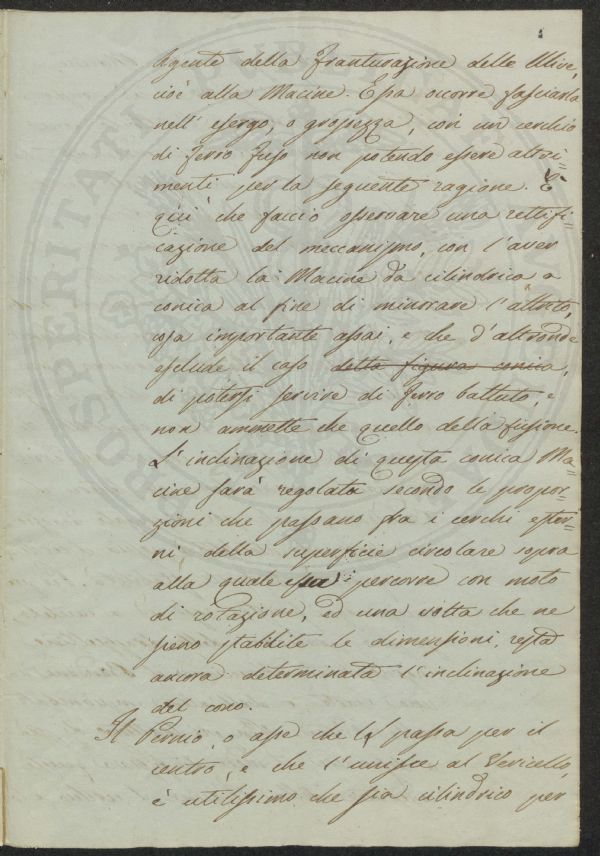 Agente della Franturazione delle Ulive,
cioè alla Macine. Essa occorre fasciarla
nell' esergo, o grossezza, con un cerchio
di ferro fuso non potendo essere altri=
menti per la seguente ragione. E
qui che faccio osservare una rettifi=
cazione del meccanismo, con l'aver
ridotta la Macine da cilindrica a
conica al fine di minorare l'attrito,
cosa importante assai, e che d'altronde
esclude il caso della figura conica,
di potersi servire di Ferro battuto, e
non ammette che quello della fusione.
L'inclinazione di questa conica Ma=
cine sarà regolata secondo le propor=
zioni che passano fra i cerchi ester=
ni della superficie circolare sopra
alla quale percorre con moto
di rotazione, ed una volta che ne
sieno stabilite le dimensioni, resta
ancora determinata l'inclinazione
del cono.
Il Pernio, o asse che passa per il
centro, e che l'unisce al Vericello,
è utilissimo che sia cilindrico per
PROSPERITATI PUBLICAE